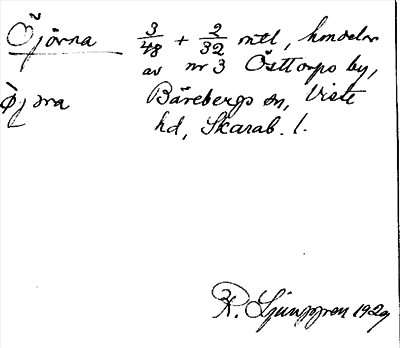 Öjörna 3/48 + 2/32 mtl, hemdelar
av nr 3 Östtorps by,
Öjöna Bärebergs sn, Viste
hd, Skarab. l.
R. Ljunggren 1929